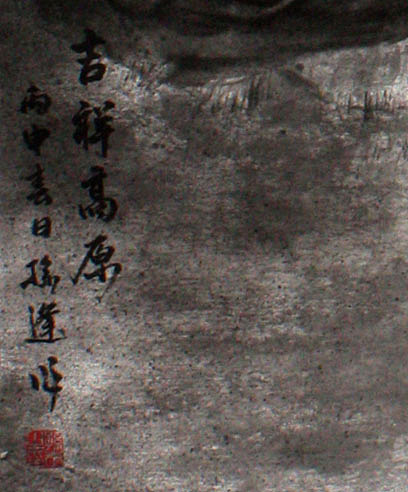 吉祥高原
丙申春日孙逢作